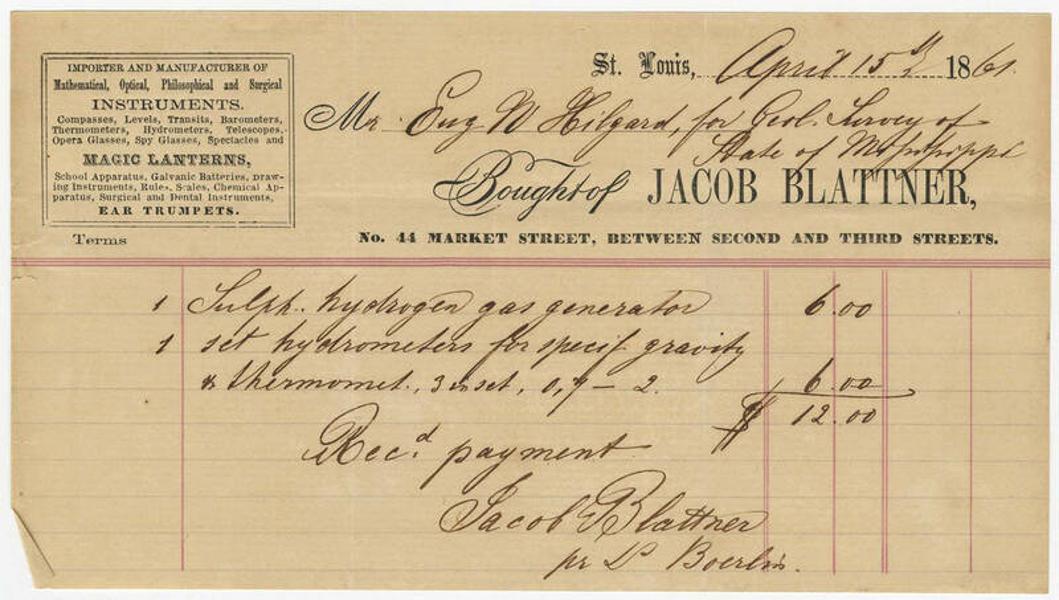 IMPORTER AND MANUFACTURER OF
Mathematical, Optical, Philosophical and Surgical
INSTRUMENTS.
Compasses, Levels, Transits, Barometers,
Thermometers, Hydrometers, Telescopes,
Opera Glasses, Spy Glasses, Spectacles and
MAGIC LANTERNS,
School Apparatus, Galvanic Batteries, Draw-
ing Instruments, Rules, Scales, Chemical Ap-
paratus, Surgical and Dental Instruments,
EAR TRUMPETS.
Terms
St. Louis, April 15th 1861.
Mr. Eug W Hilgard, for Geol. Survey of
State of Mississippi
Bought of JACOB BLATTNER,
No. 44 MARKET STREET, BETWEEN SECOND AND THIRD STREETS.
1 Sulph. hydrogen gas generator 6.00
1 set hydrometers for specif gravity
& thermomet., 3 in set, 0,7 – 2. 6.00
$ 12.00
Rec.d payment
Jacob Blattner
pr